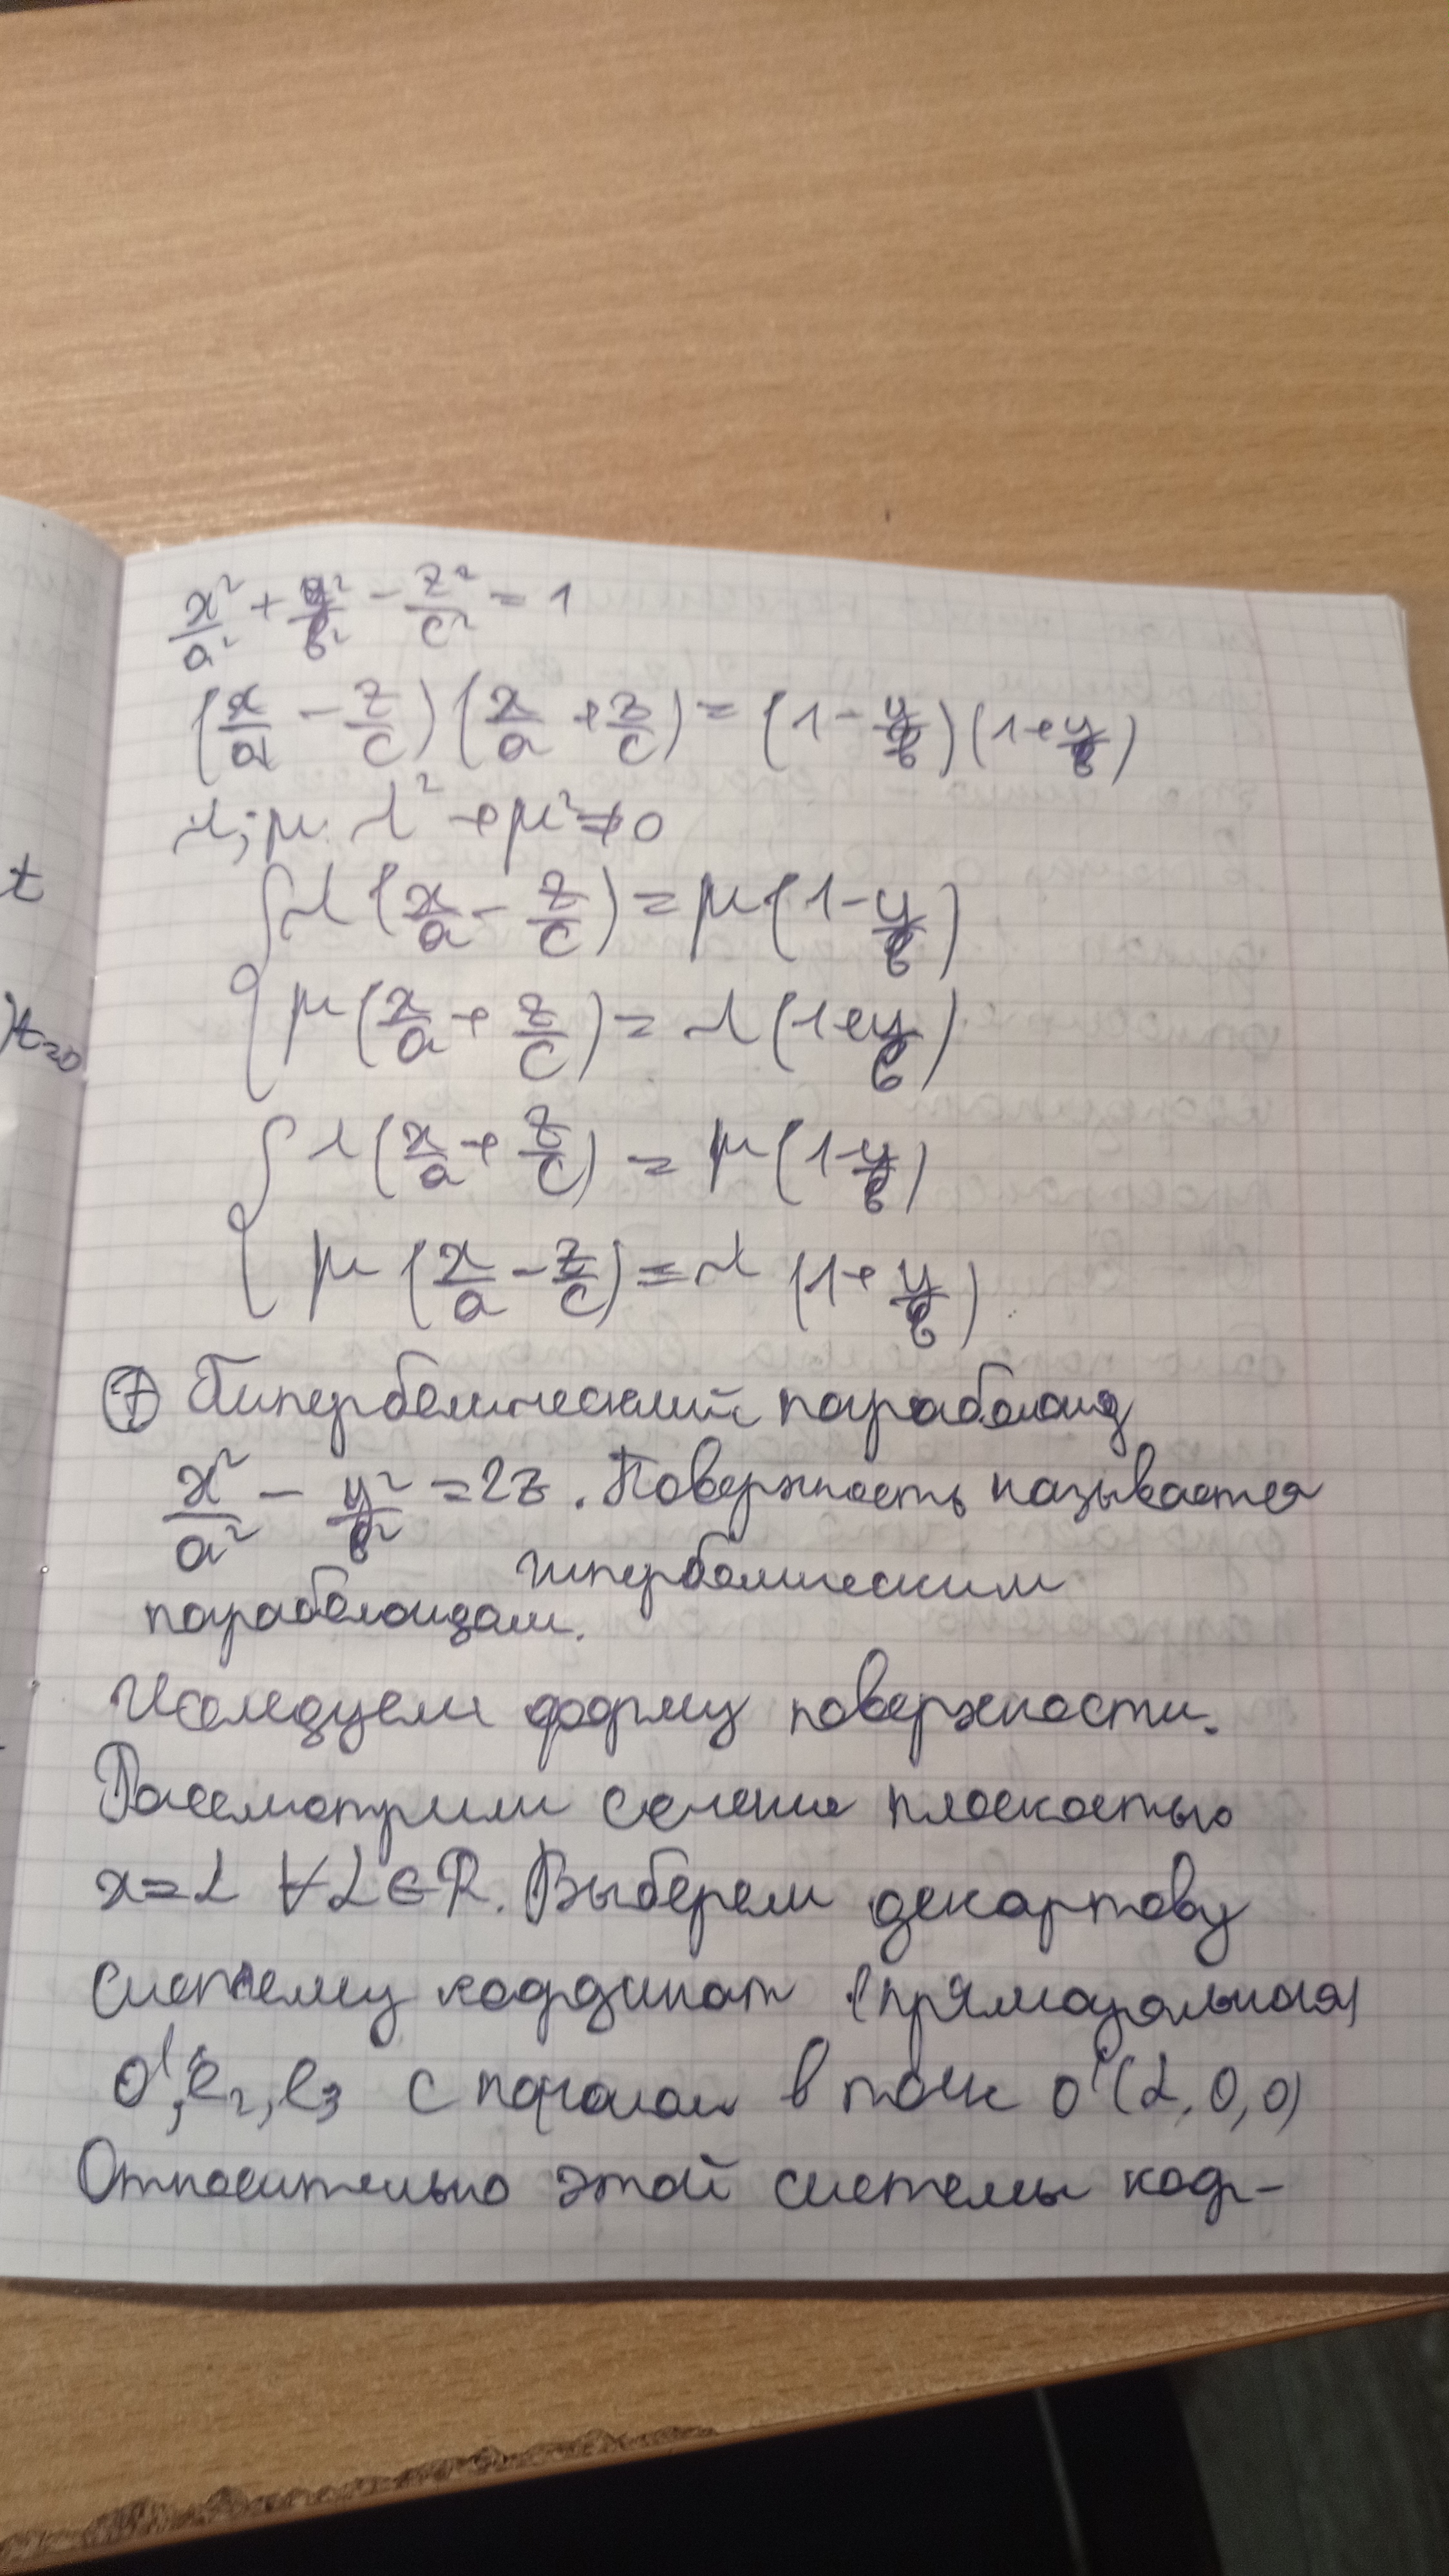 x²/a² + y²/b² - z²/c² = 1
(x/a - z/c)(x/a + z/c) = (1 - y/b)(1 + y/b)
λ; μ λ² + μ² ≠ 0
{ λ(x/a - z/c) = μ(1 - y/b)
t
μ(x/a + z/c) = λ(1 + y/b)
t=0
{ λ(x/a + z/c) = μ(1 - y/b)
μ(x/a - z/c) = λ(1 + y/b)
⑦ Гиперболический параболоид
x²/a² - y²/b² = 2z. Поверхность называется
гиперболическим
параболоидом.
Исследуем форму поверхности.
Рассмотрим сечение плоскостью
x=α ∀α∈R. Выберем декартову
систему координат (прямоугольная)
O', e₂, e₃ с началом в точке O'(α, 0, 0)
Относительно этой системы коор-